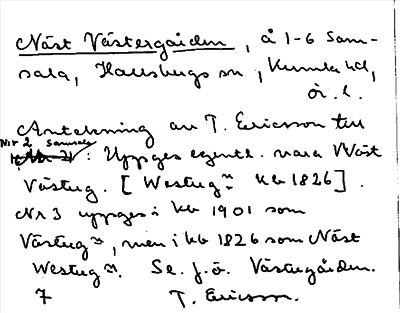 Näst Västergården, å 1-6 Sam-
sala, Hallsbergs sn, Kumla hd,
ör. l.
Anteckning av T. Ericsson till
Nr 2 Samsala
: Uppges egentl. vara Näst
Västug. [Westug~n~ kb 1826].
Nr 3 uppges i kb 1901 som
Västug~n~, men i kb 1826 som Näst
Westug~n~. Se f.ö. Västergården.
7 T. Ericsson.